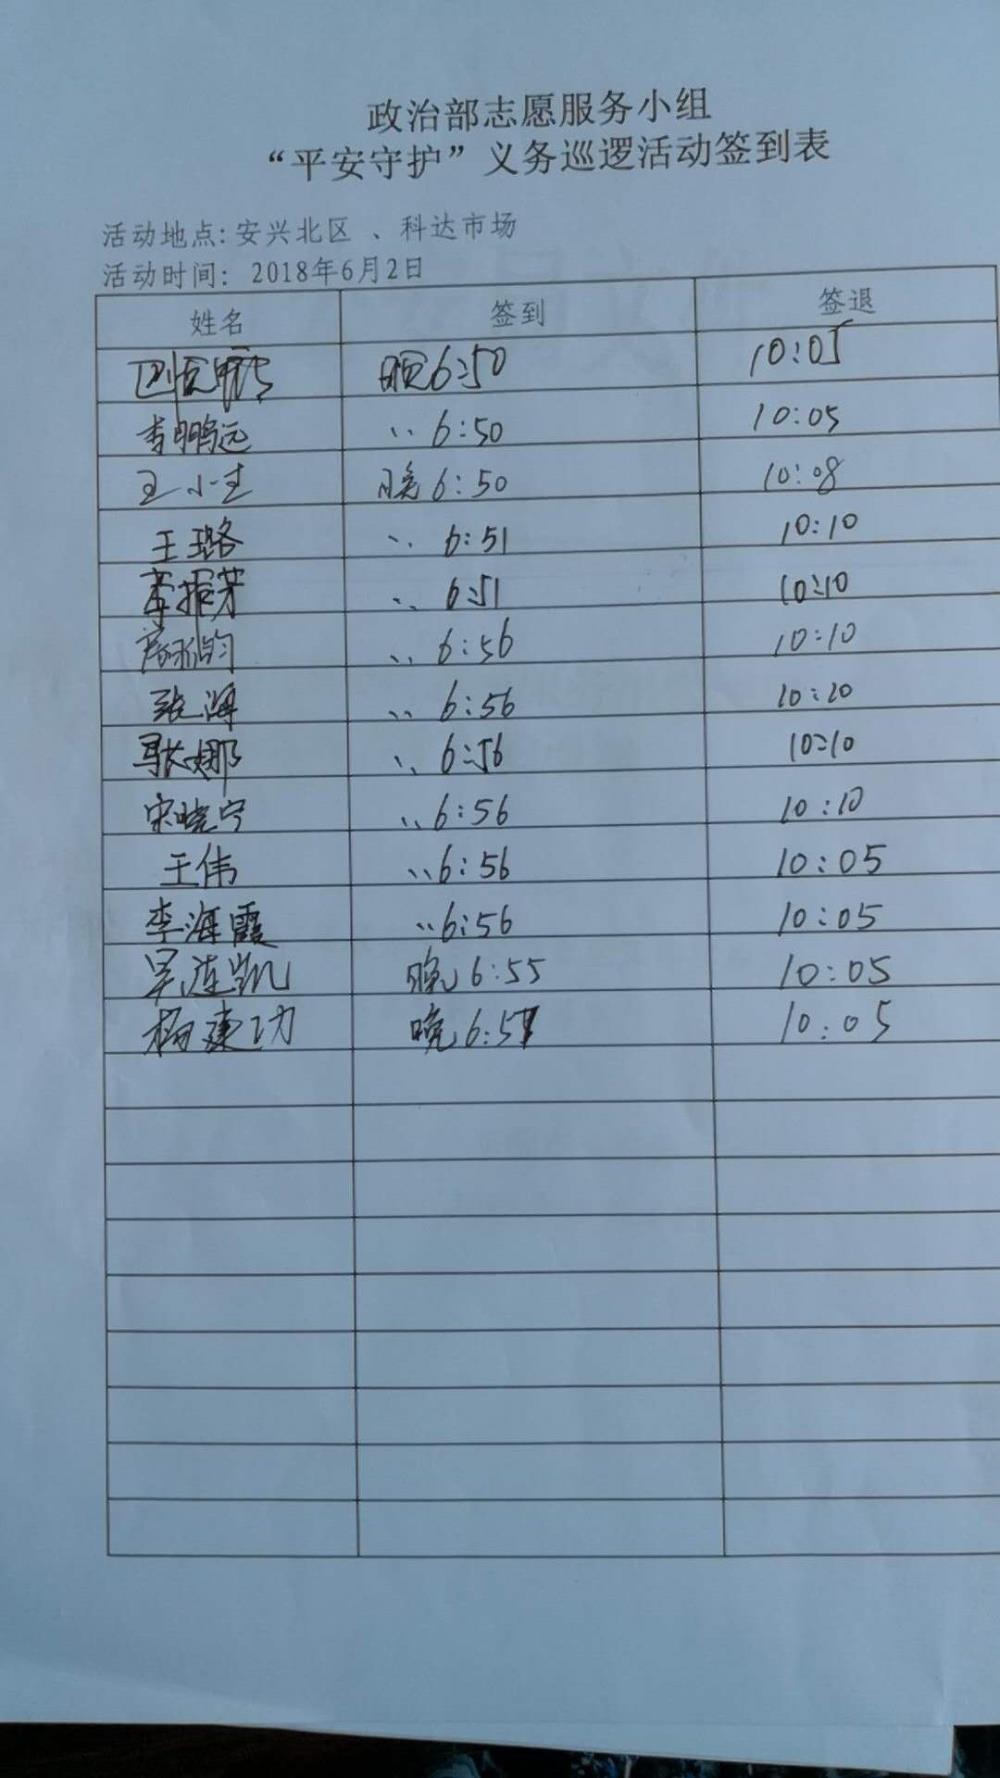 政治部志愿服务小组
“平安守护”义务巡逻活动签到表
活动地点:安兴北区 、科达市场
活动时间: 2018年6月2日
姓名 签到 签退
晚6:50 10:05
李鹏远 〃 6:50 10:05
王小生 晚6:50 10:08
王璐 〃 6:51 10:10
李振芳 〃 6:51 10:10
〃 6:56 10:10
张海 〃 6:56 10:20
耿娜 〃 6:56 10:10
宋晓宁 〃 6:56 10:10
王伟 〃 6:56 10:05
李海霞 〃 6:56 10:05
吴连凯 晚6:55 10:05
杨建功 晚6:57 10:05